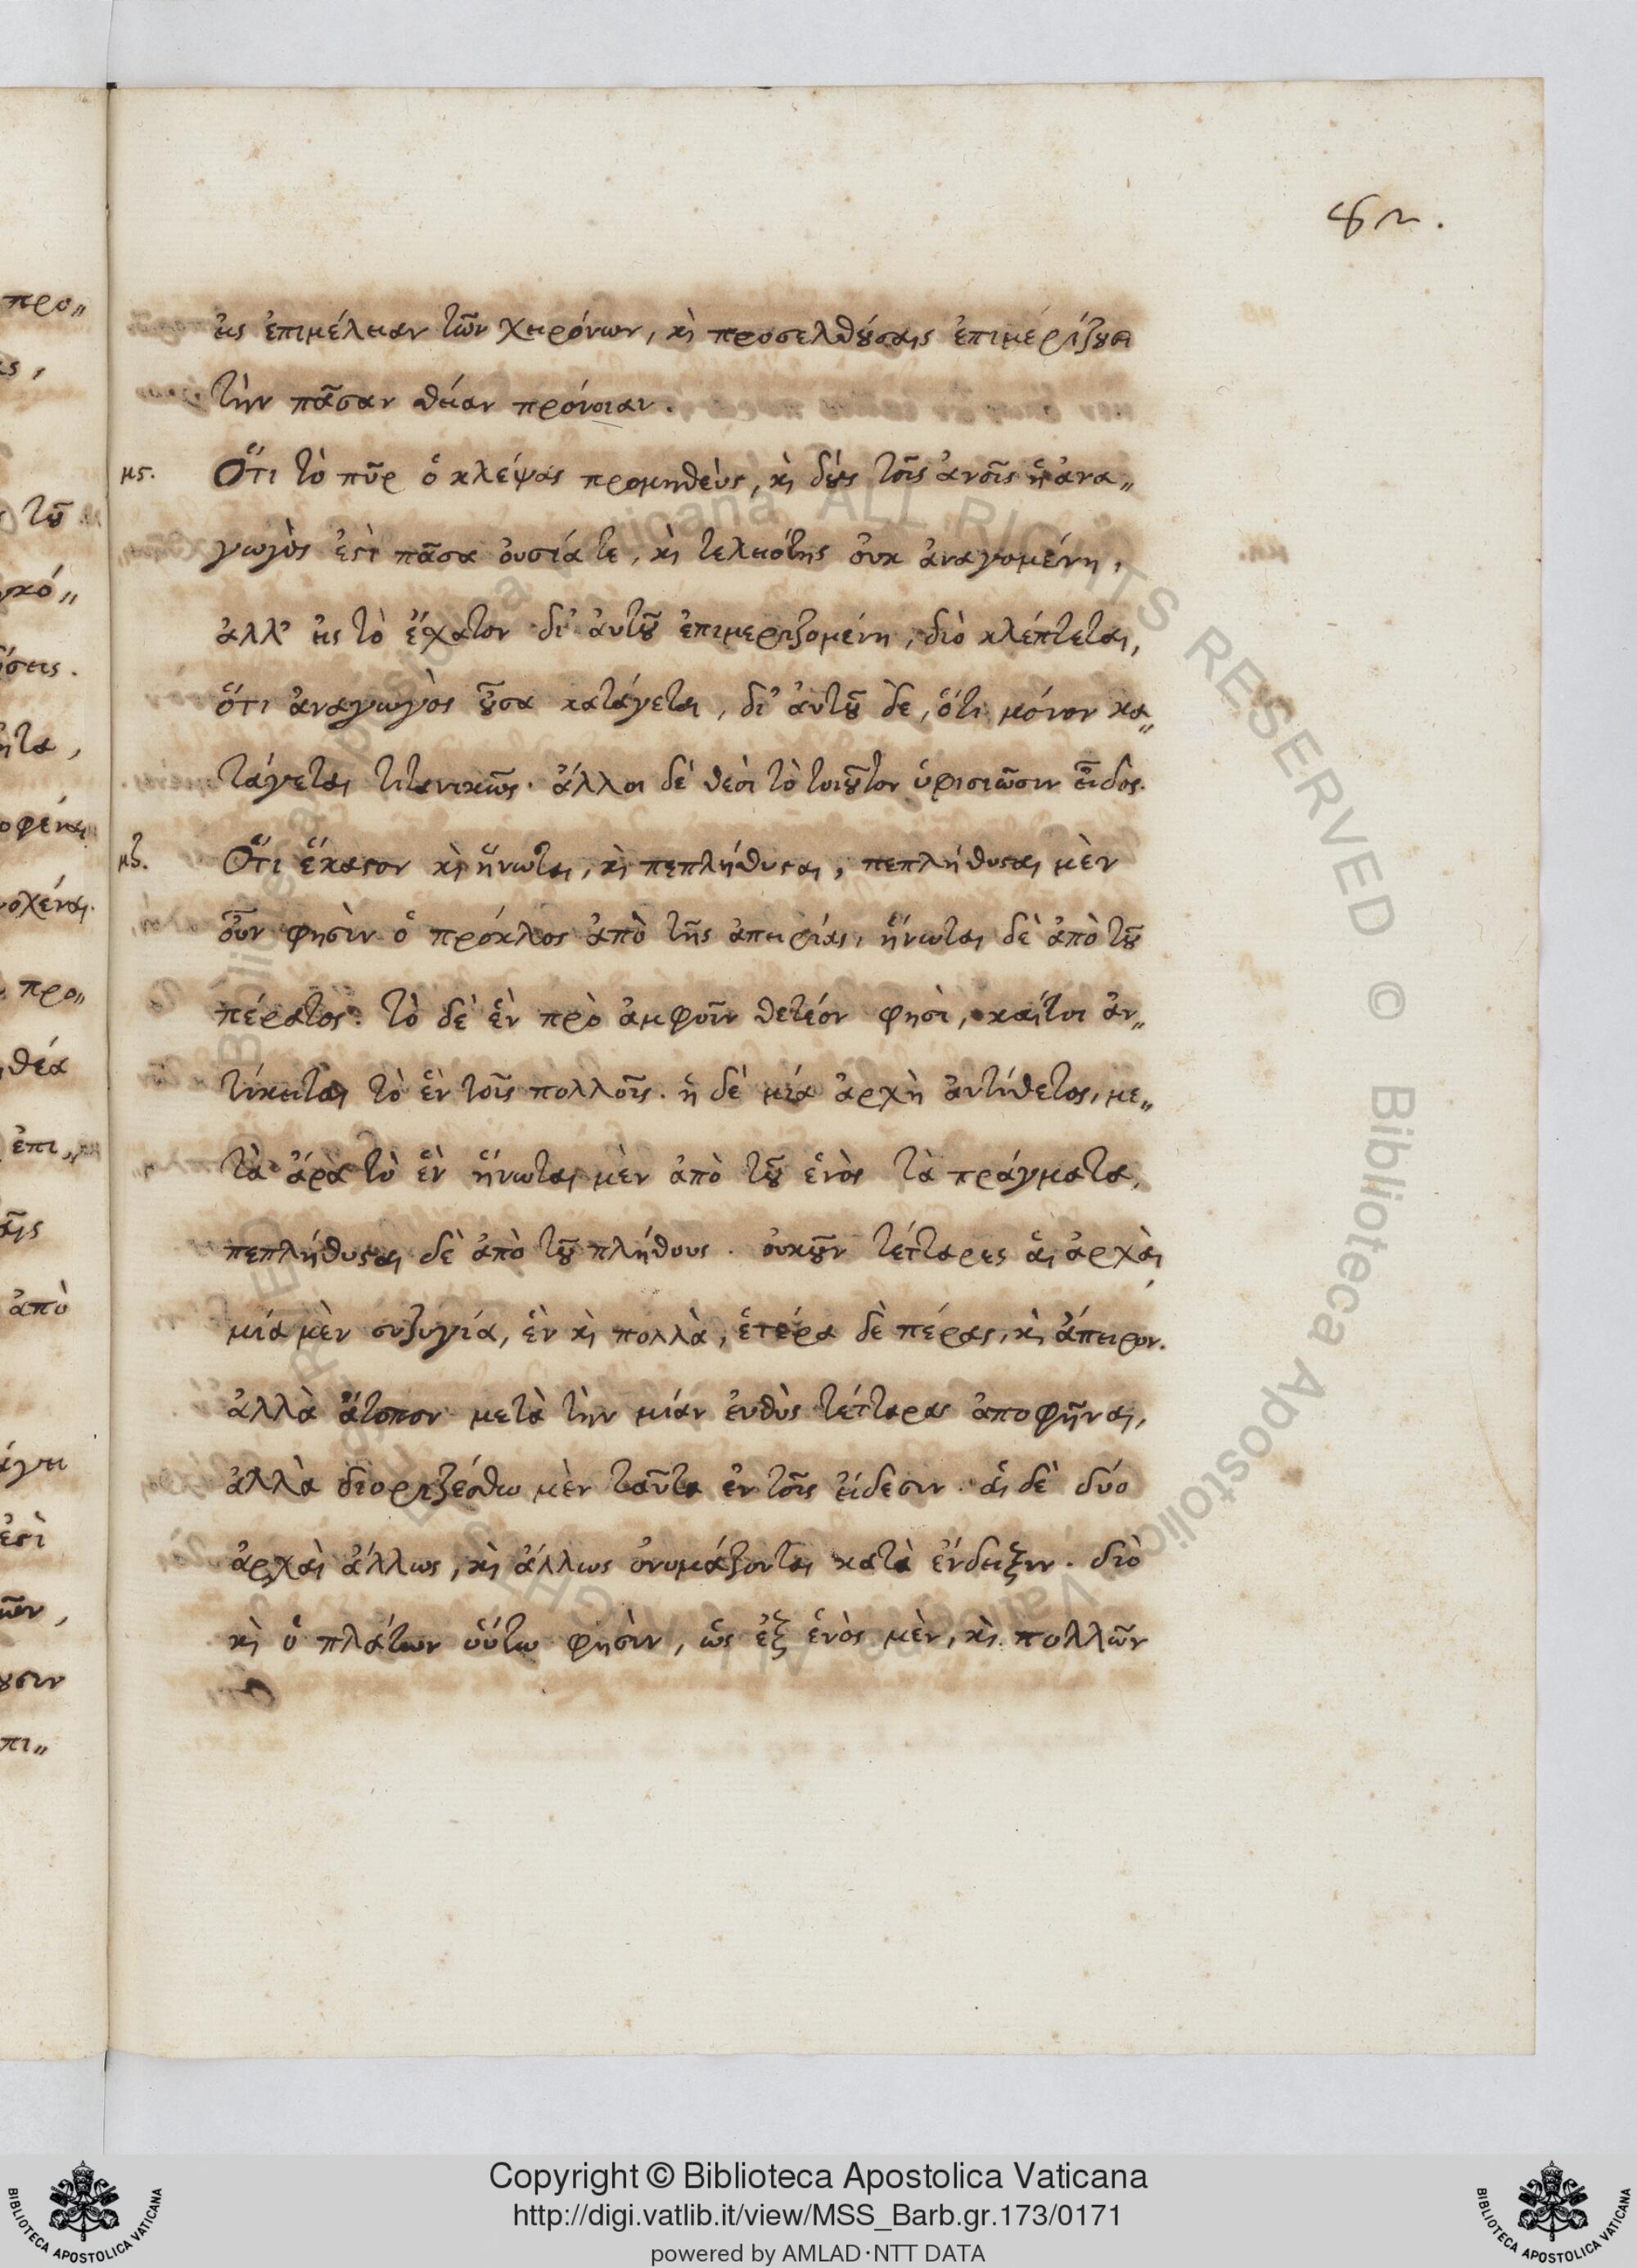 82.
εἰς ἐπιμέλειαν τῶν χειρόνων, κὶ προσελθούσαις ἐπιμερίζουσι
τὴν πᾶσαν θείαν πρόνοιαν.
μς. Ὅτι τὸ πῦρ ὁ κλέψας προμηθεὺς, κὶ δοὺς τοῖς ἀνοῖς ἡ ἀνα„
γωγὸς ἐστὶ πᾶσα οὐσία τε, κὶ τελειότης οὐκ ἀναγομένη,
ἀλλ' εἰς τὸ ἔσχατον δι' αὐτοῦ ἐπιμεριζομένη, διὸ κλέπτεται,
ὅτι ἀναγωγὸς οὖσα κατάγεται, δι' αὐτοῦ δὲ, ὅτι μόνον κα„
τάγεται τιτανικῶς. ἄλλοι δὲ θεοὶ τὸ τοιοῦτον ὑφιστῶσιν εἶδος.
μζ. Ὅτι ἕκαστον κὶ ἥνωται, κὶ πεπλήθυσται, πεπλήθυσται μὲν
οὖν φησὶν ὁ πρόκλος ἀπὸ τῆς ἀπειρίας, ἥνωται δὲ ἀπὸ τοῦ
πέρατος. τὸ δὲ ἓν πρὸ ἀμφοῖν θετέον φησὶ, καίτοι ἀν„
τίκειται τὸ ἓν τοῖς πολλοῖς. ἡ δὲ μία ἀρχὴ ἀντίθετος, με„
τὰ ἄρα τὸ ἓν ἥνωται μὲν ἀπὸ τοῦ ἑνὸς τὰ πράγματα,
πεπλήθυσται δὲ ἀπὸ τοῦ πλήθους. οὐκοῦν τέτταρες αἱ ἀρχαὶ,
μία μὲν συζυγία, ἓν κὶ πολλὰ, ἑτέρα δὲ πέρας, κὶ ἄπειρον.
ἀλλὰ ἄτοπον μετὰ τὴν μίαν εὐθὺς τέτταρας ἀποφῆναι,
ἀλλὰ διοριζέσθω μὲν ταῦτα ἐν τοῖς εἴδεσιν. αἱ δὲ δύο
ἀρχαὶ ἄλλως, κὶ ἄλλως ὀνομάζονται κατὰ ἔνδειξιν. διὸ
κὶ ὁ πλάτων οὕτω φησὶν, ὡς ἐξ ἑνὸς μὲν, κὶ πολλῶν
Copyright © Biblioteca Apostolica Vaticana
http://digi.vatlib.it/view/MSS_Barb.gr.173/0171
powered by AMLAD·NTT DATA